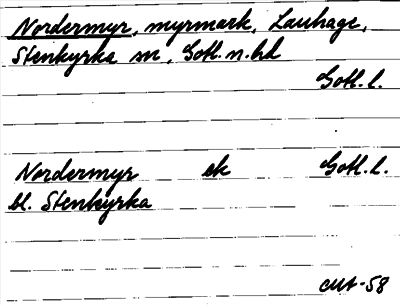 Nordermyr, myrmark, Lauhage,
Stenkyrka sn, Gotl. n. hd
Gotl. l.
Nordermyr ek Gotl. l.
bl. Stenkyrka
-58